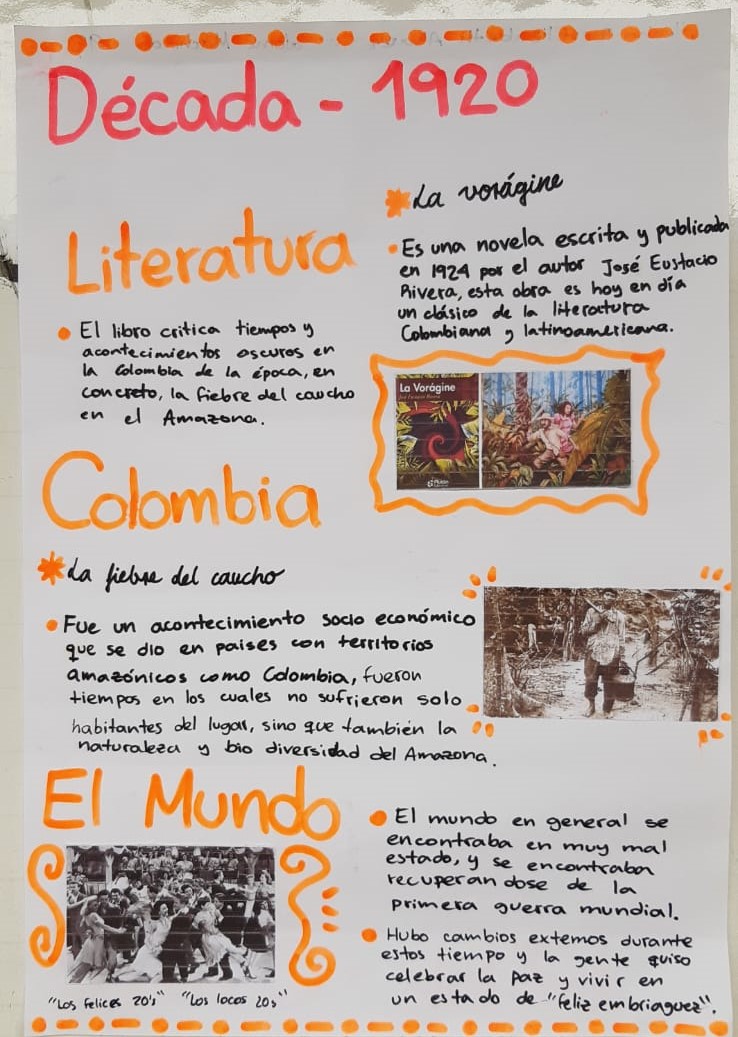 Década - 1920
Literatura
El libro critica tiempos y
acontecimientos oscuros en
la Colombia de la época, en
concreto, la fiebre del caucho
en el Amazona.
La vorágine
Es una novela escrita y publicada
en 1924 por el autor José Eustacio
Rivera, esta obra es hoy en día
un clásico de la literactura
Colombiana y latinoamericana.
La Vorágine
Colombia
La fiebre del caucho
Fue un acontecimiento socio económico
que se dio en paises con territorios
amazónicos como Colombia, fueron
tiempos en los cuales no sufrieron solo
habitantes del lugar, sino que también la
naturaleza y bio diversidad del Amazona.
El Mundo
"Los felices 20's" "Los locos 20s"
El mundo en general se
encontraba en muy mal
estado, y se encontraba
recuperandose de la
primera guerra mundial.
Hubo cambios extemos durante
estos tiempo y la gente quiso
celebrar la paz y vivir en
un estado de "feliz embriaguez".